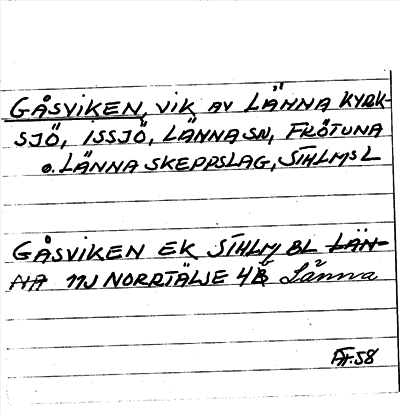 GÅSVIKEN, VIK AV LÄNNA KYRK-
SJÖ, ISSJÖ, LÄNNA SN, FRÖTUNA
O. LÄNNA SKEPPSLAG, STHLMS L
GÅSVIKEN EK STHLM BL LÄN-
NA 11J NORRTÄLJE 4B Länna
58